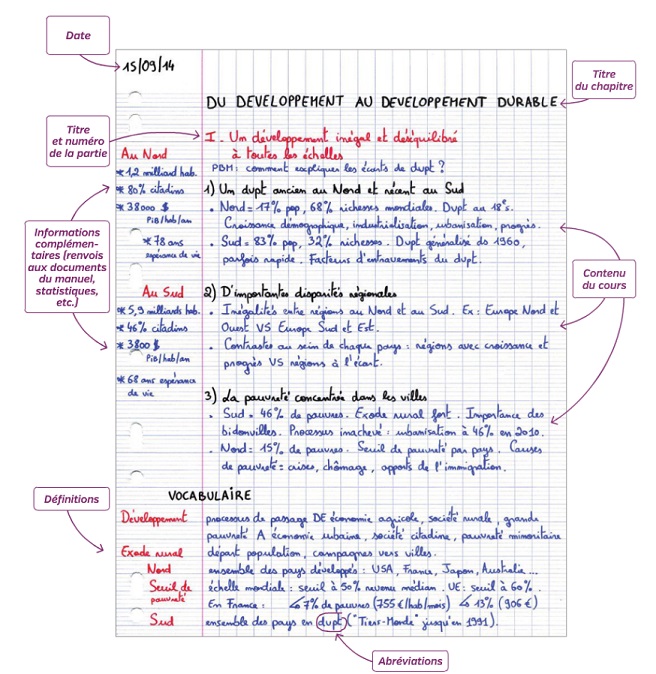 Date
15/09/14
DU DEVELOPPEMENT AU DEVELOPPEMENT DURABLE
Titre
du chapitre
Titre
et numéro
de la partie
I. Un développement inégal et déséquilibré
à toutes les échelles
PBM : comment expliquer les écarts de dvpt ?
Au Nord
* 1,2 milliard hab.
* 80% citadins
* 38000 $
PIB/hab/an
* 78 ans
espérance de vie
Informations
complémen-
taires (renvois
aux documents
du manuel,
statistiques,
etc.)
1) Un dvpt ancien au Nord et récent au Sud
• Nord = 17% pop, 68% richesses mondiales. Dvpt au 18es.
Croissance démographique, industrialisation, urbanisation, progrès.
• Sud = 83% pop, 32% richesses. Dvpt généralisé ds 1960,
parfois rapide. Facteurs d'entravements du dvpt.
Contenu
du cours
Au Sud
* 5,9 milliards hab.
* 46% citadins
* 3800 $
PIB/hab/an
* 68 ans espérance
de vie
2) D'importantes disparités régionales
• Inégalités entre régions au Nord et au Sud. Ex : Europe Nord et
Ouest VS Europe Sud et Est.
• Contrastes au sein de chaque pays : régions avec croissance et
progrès VS régions à l'écart.
3) La pauvreté concentrée dans les villes
• Sud = 46% de pauvres. Exode rural fort. Importance des
bidonvilles. Processus inachevé : urbanisation à 46% en 2010.
• Nord = 15% de pauvres. Seuil de pauvreté par pays. Causes
de pauvreté = crises, chômage, apports de l'immigration.
Définitions
VOCABULAIRE
Développement processus de passage DE économie agricole, société rurale, grande
pauvreté A économie urbaine, société citadine, pauvreté minoritaire
Exode rural départ population, campagnes vers villes.
Nord ensemble des pays développés : USA, France, Japon, Australie ...
Seuil de échelle mondiale : seuil à 50% revenu médian. UE : seuil à 60%.
pauvreté En France : ↳ 7% de pauvres (755 €/hab/mois) ↳ 13% (906 €)
Sud ensemble des pays en dvpt ("Tiers-Monde" jusqu'en 1991).
Abréviations